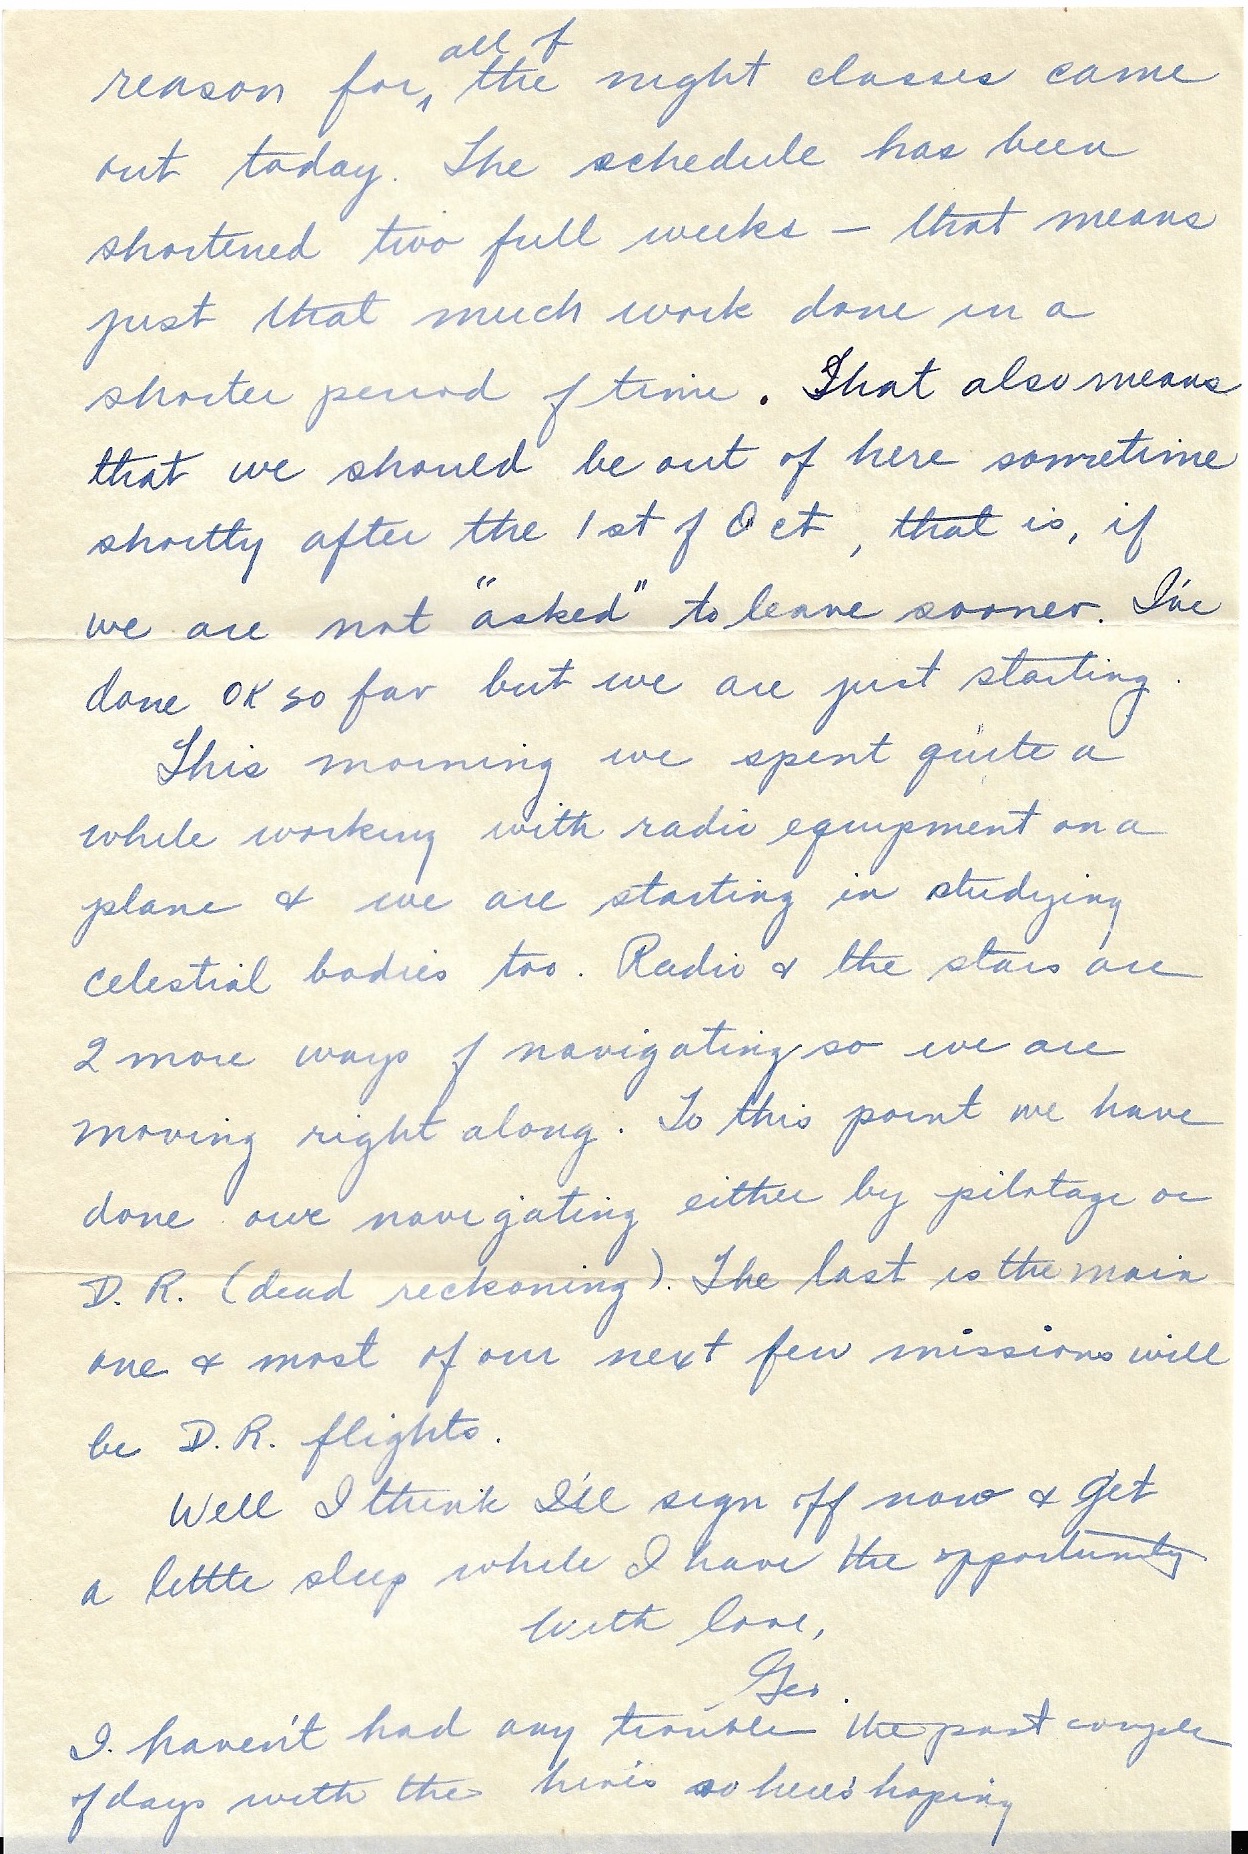 reason for all of the night classes came
out today. The schedule has been
shortened two full weeks — that means
just that much work done in a
shorter period of time. That also means
that we should be out of here sometime
shortly after the 1st of Oct, that is, if
we are not "asked" to leave sooner. I've
done OK so far but we are just starting.
This morning we spent quite a
while working with radio equipment on a
plane & we are starting in studying
celestial bodies too. Radio & the stars are
2 more ways of navigating so we are
moving right along. To this point we have
done our navigating either by pilotage or
D.R. (dead reckoning). The last is the main
one & most of our next few missions will
be D.R. flights.
Well I think I'll sign off now & get
a little sleep while I have the opportunity
With love,
Geo.
I haven't had any trouble the past couple
of days with the so here's hoping